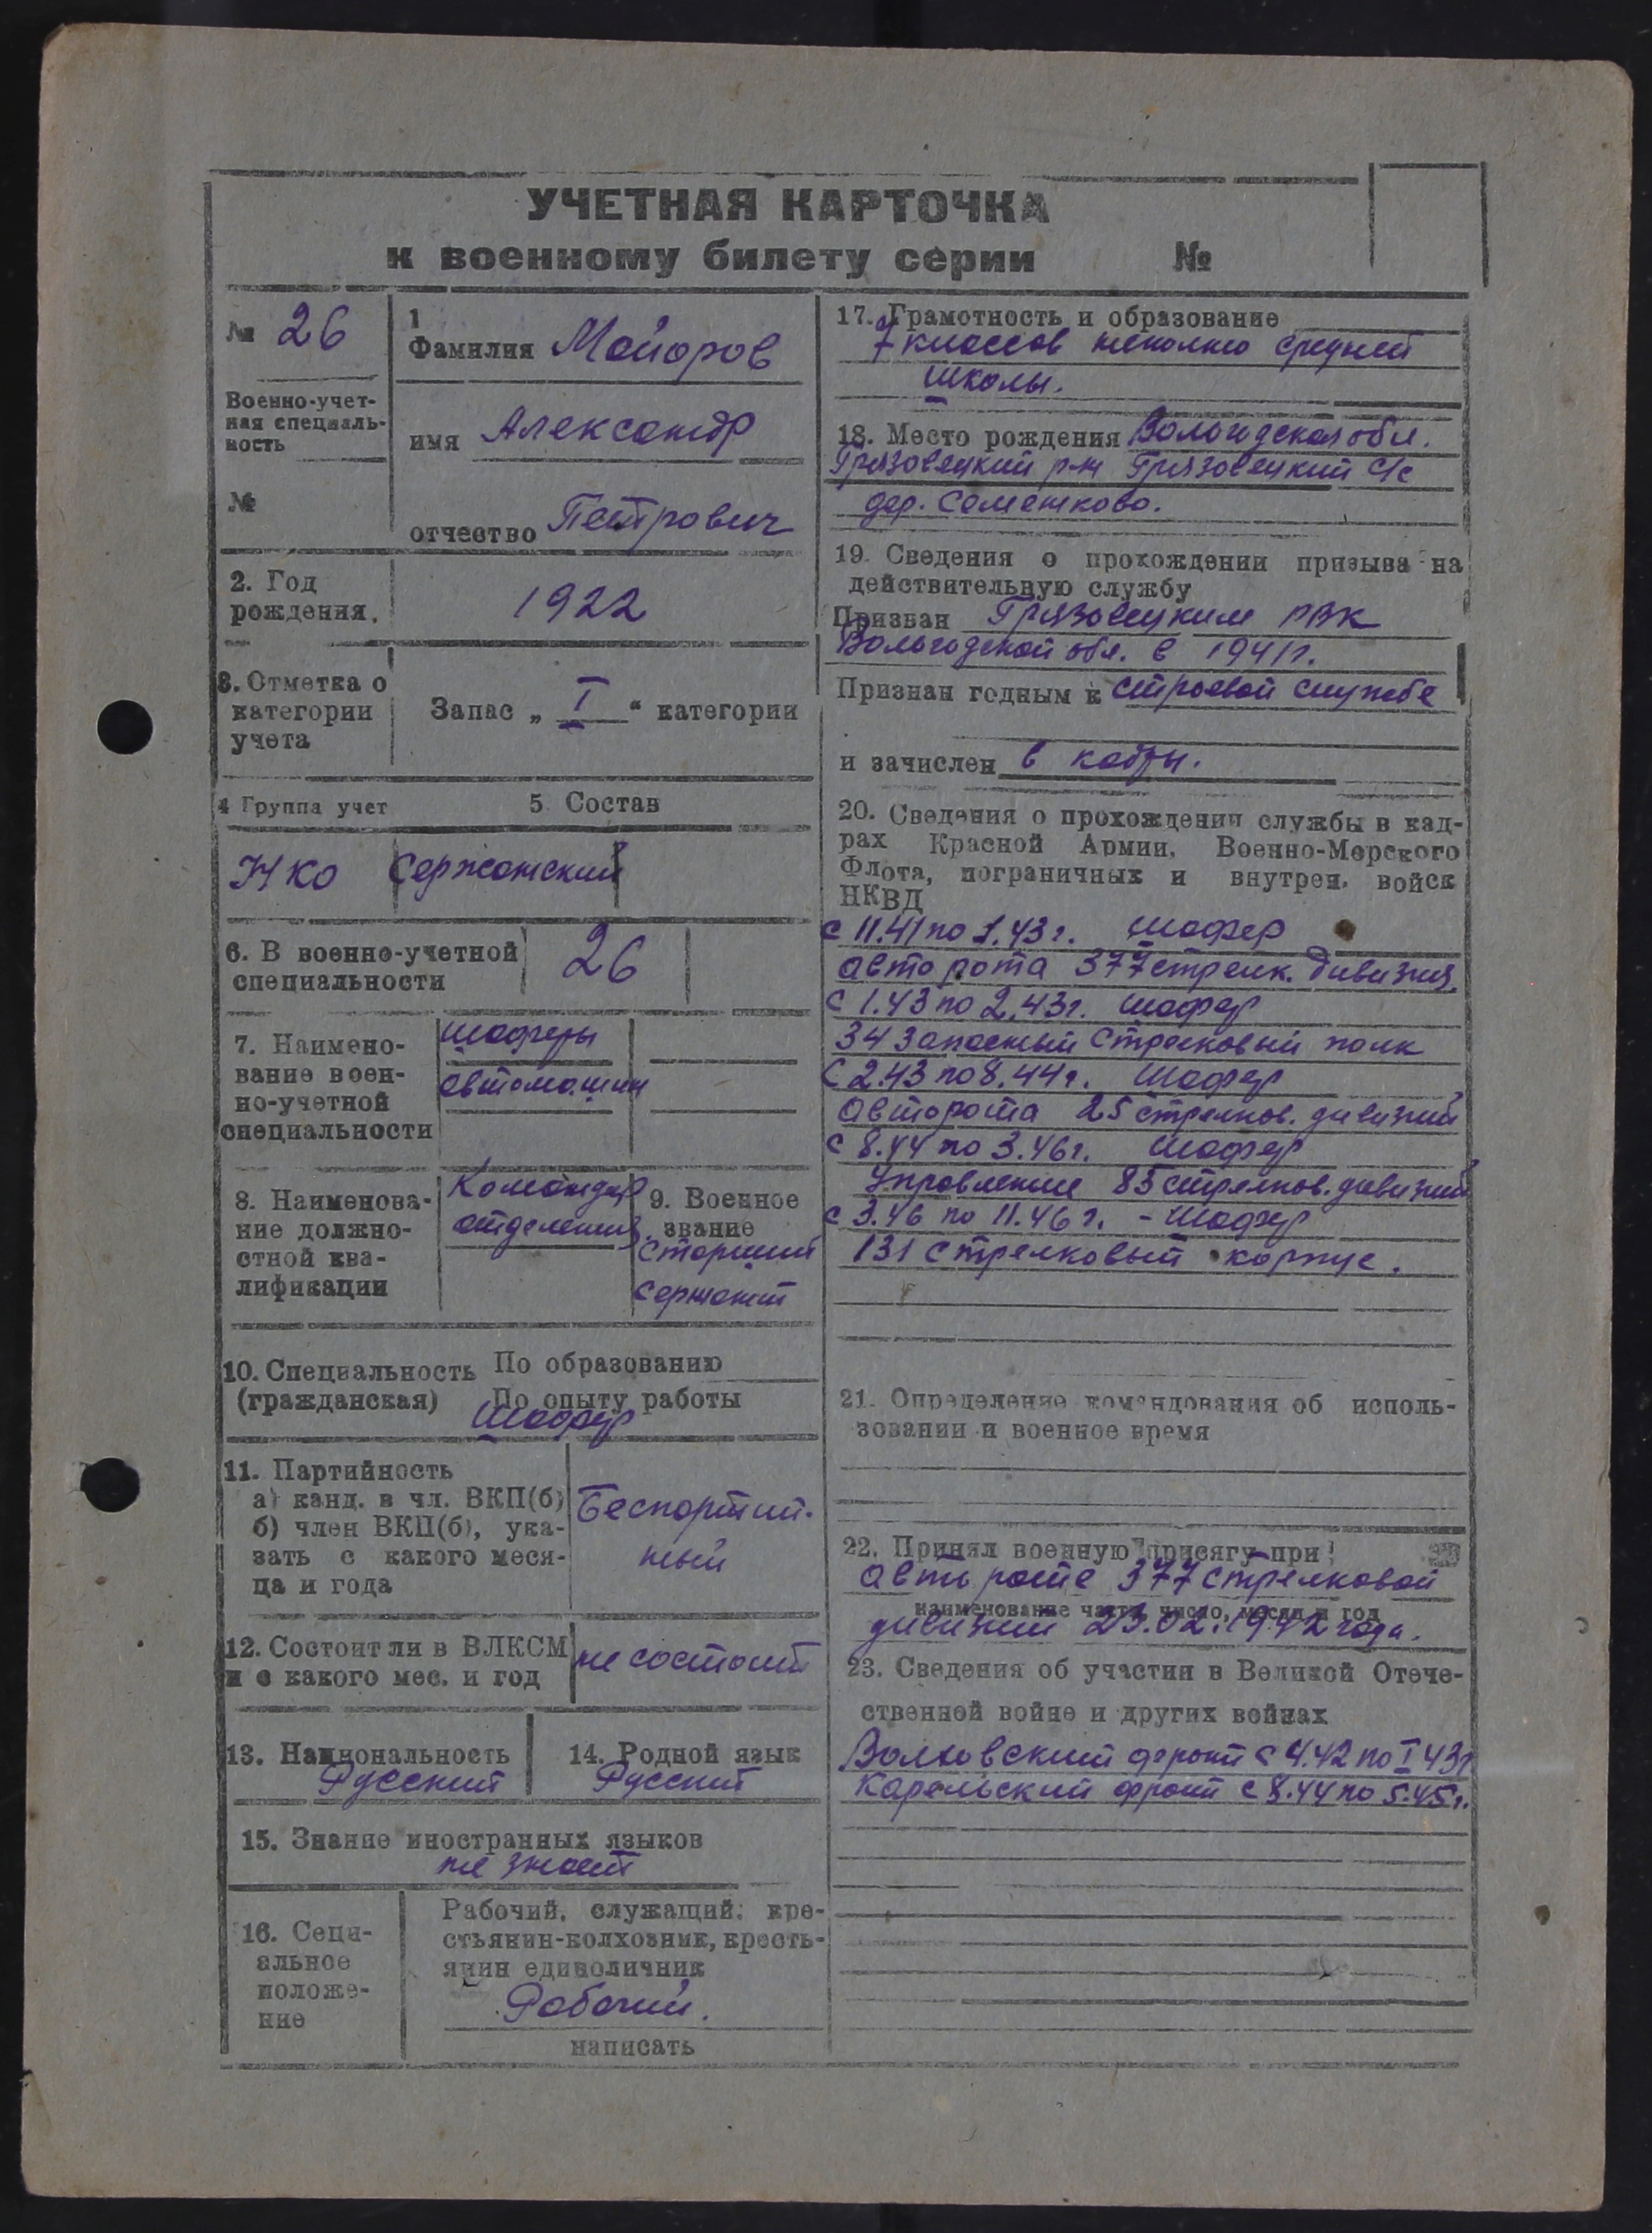 УЧЕТНАЯ КАРТОЧКА
к военному билету серии №
№ 26
Военно-учет-
ная специаль-
ность
№
1
Фамилия Майоров
имя Александр
отчество Петрович
2. Год
рождения.
1922
3. Отметка о
категории
учета
Запас „ I “ категории
4 Группа учет
5 Состав
НКО Сержантский
6. В военно-учетной
специальности
26
7. Наимено-
вание воен-
но-учетной
специальности
шоферы
автомашин
8. Наименова-
ние должно-
стной ква-
лификации
Командир
отделения
9. Военное
звание
Старший
Сержант
10. Специальность По образованию
(гражданская) По опыту работы
Шофер
11. Партийность
а) канд. в чл. ВКП(б)
б) член ВКП(б), ука-
зать с какого меся-
ца и года
Беспартий-
ный
12. Состоит ли в ВЛКСМ
и с какого мес. и год
не состоит
13. Национальность
Русский
14. Родной язык
Русский
15. Знание иностранных языков
не знает
16. Соци-
альное
положе-
ние
Рабочий, служащий; кре-
стьянин-колхозник, кресть-
янин единоличник
Рабочий.
написать
17. Грамотность и образование
7 классов неполно средней
школы.
18. Место рождения Вологодская обл.
Грязовецкий р-н Грязовецкий с/с
дер. Семенково.
19. Сведения о прохождении призыва на
действительную службу
Призван Грязовецким РВК
Вологодской обл. в 1941г.
Признан годным к строевой службе
и зачислен в кадры.
20. Сведения о прохождении службы в кад-
рах Красной Армии, Военно-Морского
Флота, пограничных и внутрен. войск
НКВД
с 11.41 по 1.43г. шофер
авто рота 377 стрелк. дивизия.
с 1.43 по 2.43г. шофер
34 Запасный Стрелковый полк
с 2.43 по 8.44г. шофер
Авторота 25 стрелков. дивизии
с 8.44 по 3.46г. шофер
Управление 85 стрелков. дивизии
с 3.46 по 11.46г. - шофер
131 стрелковый корпус.
21. Определение командования об исполь-
зовании и военное время
22. Принял военную присягу при
авто роте 377 стрелковой
наименование части, число, месяц и год
дивизии 23.02.1942 года.
23. Сведения об участии в Великой Отече-
ственной войне и других войнах
Волховский фронт с 4.42 по I 43г
Карельский фронт с 8.44 по 5.45г.